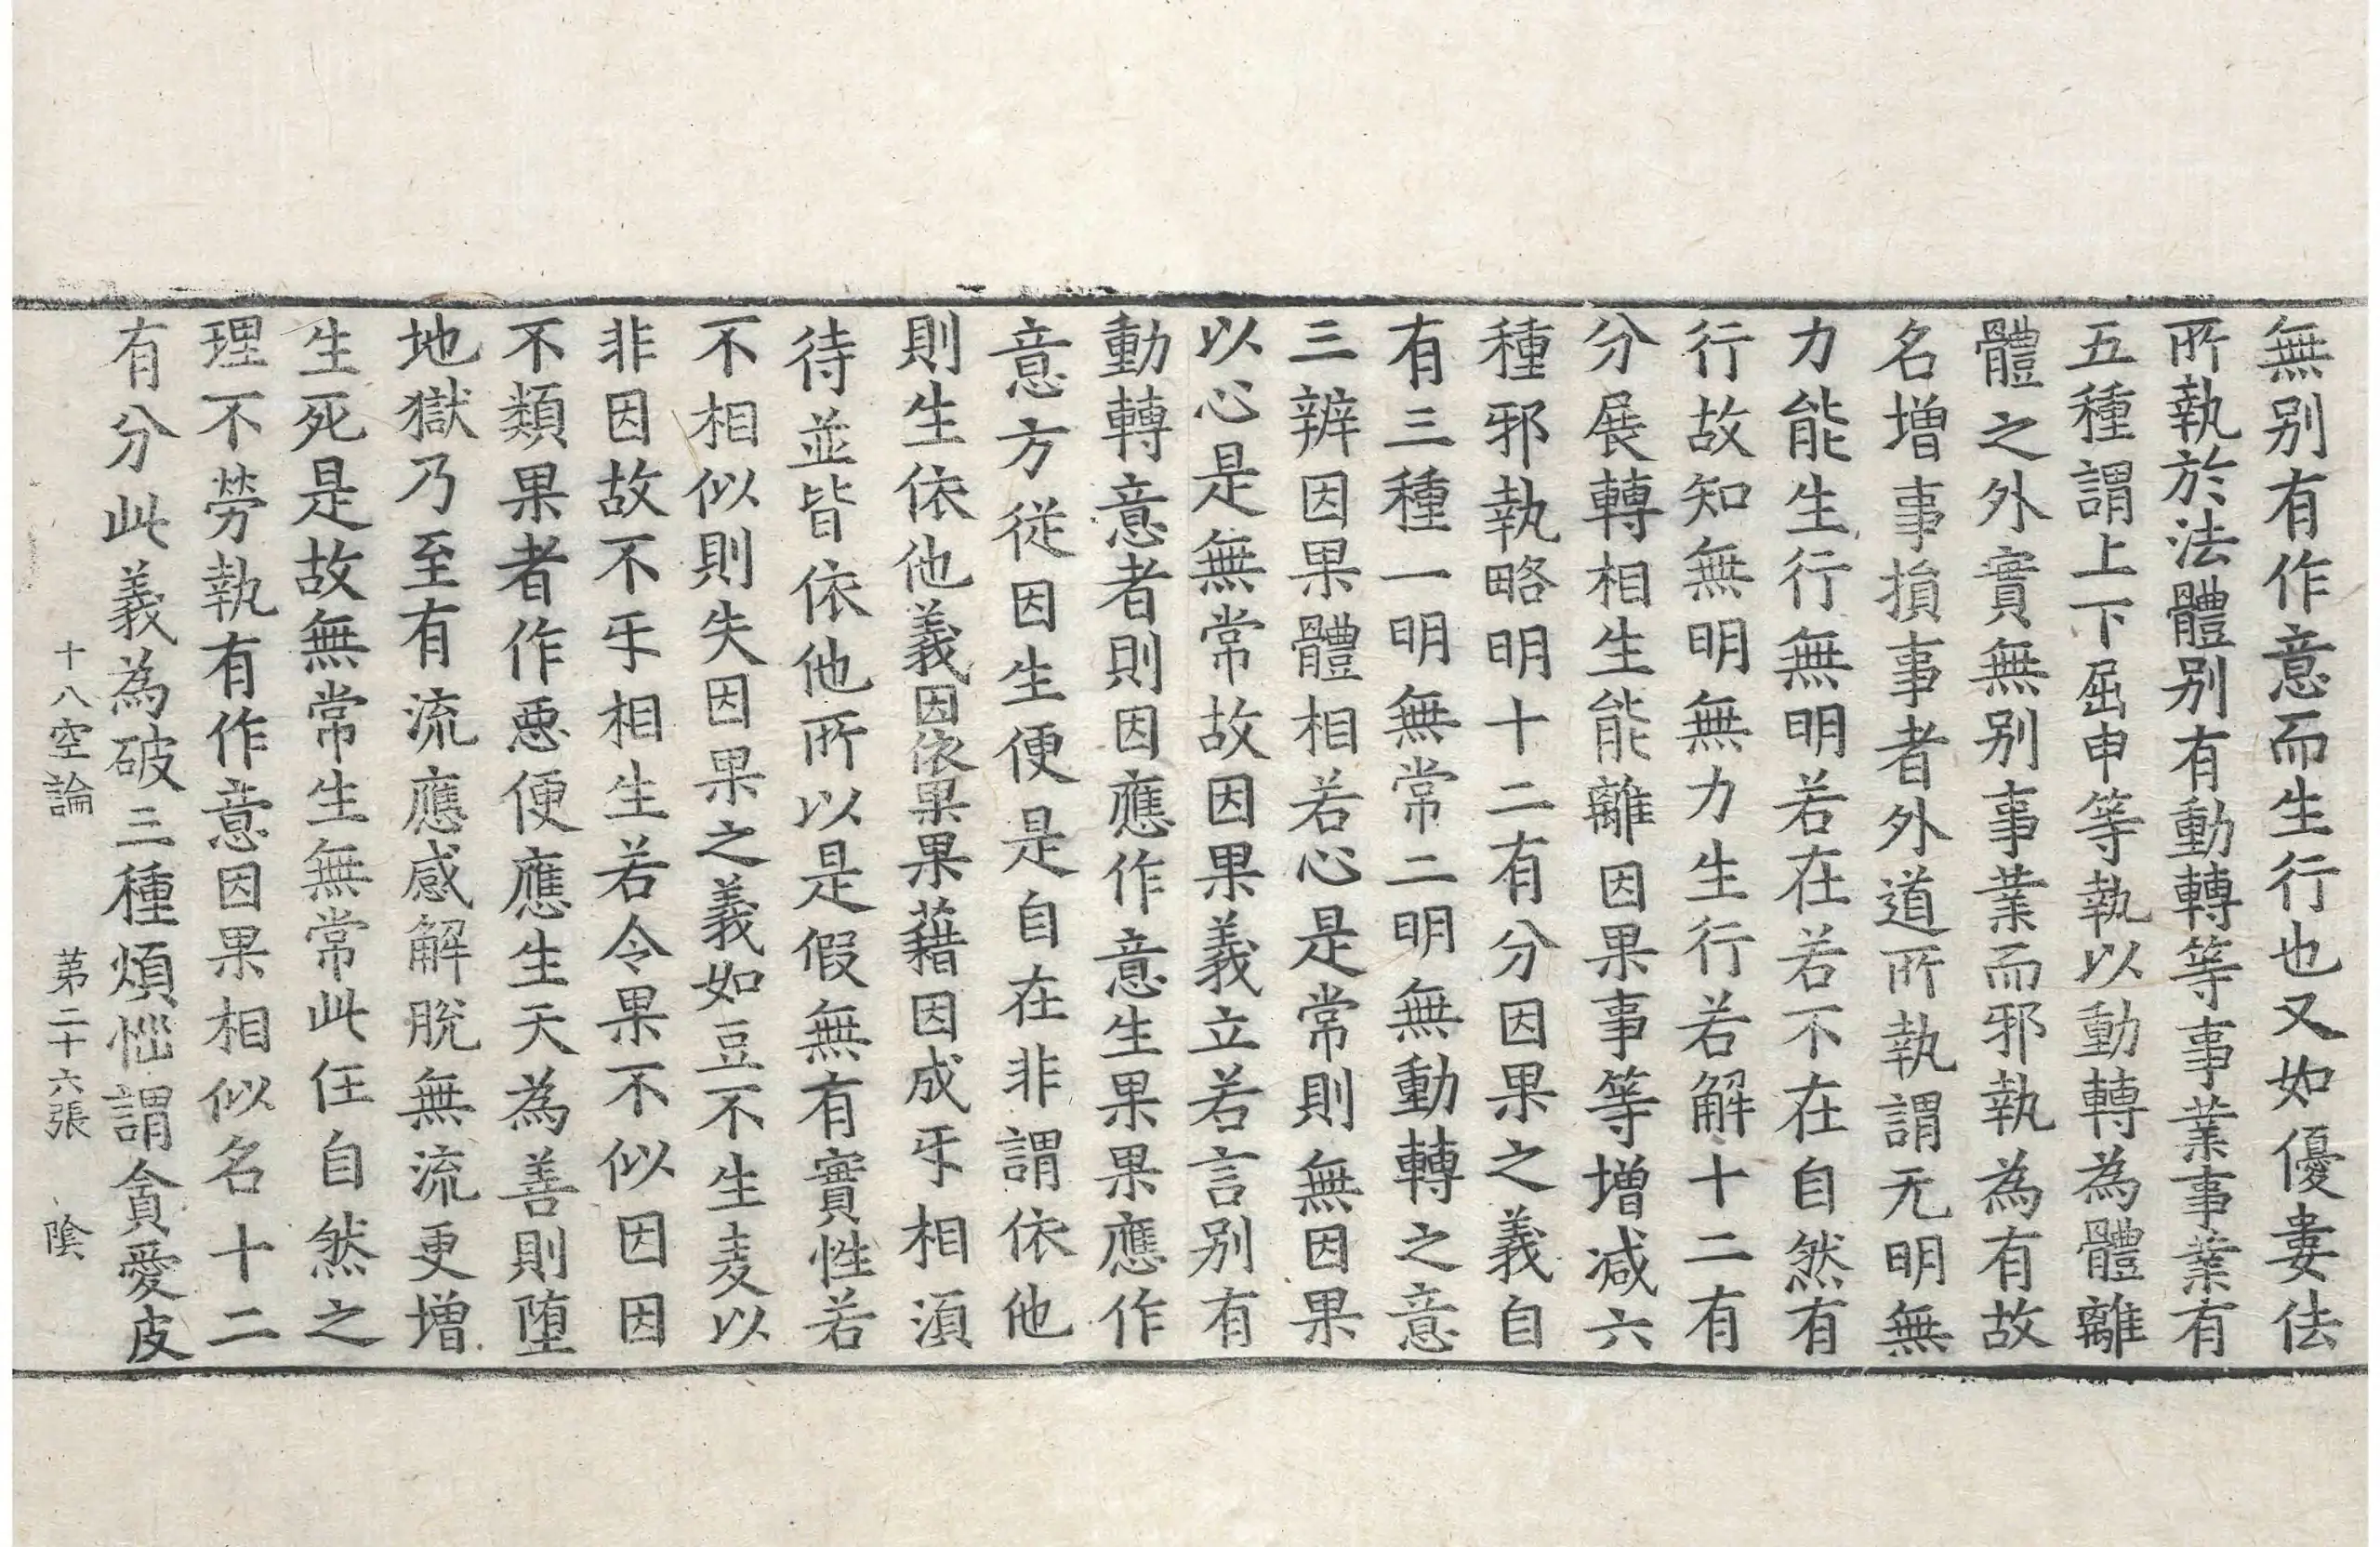 無别有作意而生行也又如優婁佉
所執於法體别有動轉等事業事業有
五種謂上下屈申等執以動轉為體離
體之外實無别事業而邪執為有故
名增事損事者外道所執謂无明無
力能生行無明若在若不在自然有
行故知無明無力生行若解十二有
分展轉相生能離因果事等增减六
種邪執略明十二有分因果之義自
有三種一明無常二明無動轉之意
三辨因果體相若心是常則無因果
以心是無常故因果義立若言别有
動轉意者則因應作意生果果應作
意方從因生便是自在非謂依他
則生依他義因依果果藉因成乎相湏
待並皆依他所以是假無有實性若
不相似則失因果之義如豆不生麦以
非因故不乎相生若令果不似因因
不類果者作惡便應生天為善則堕
地獄乃至有流應感解脫無流更增
生死是故無常生無常此任自然之
理不勞執有作意因果相似名十二
有分此義為破三種煩惱謂貪愛皮
十八空論 苐二十六張 陰